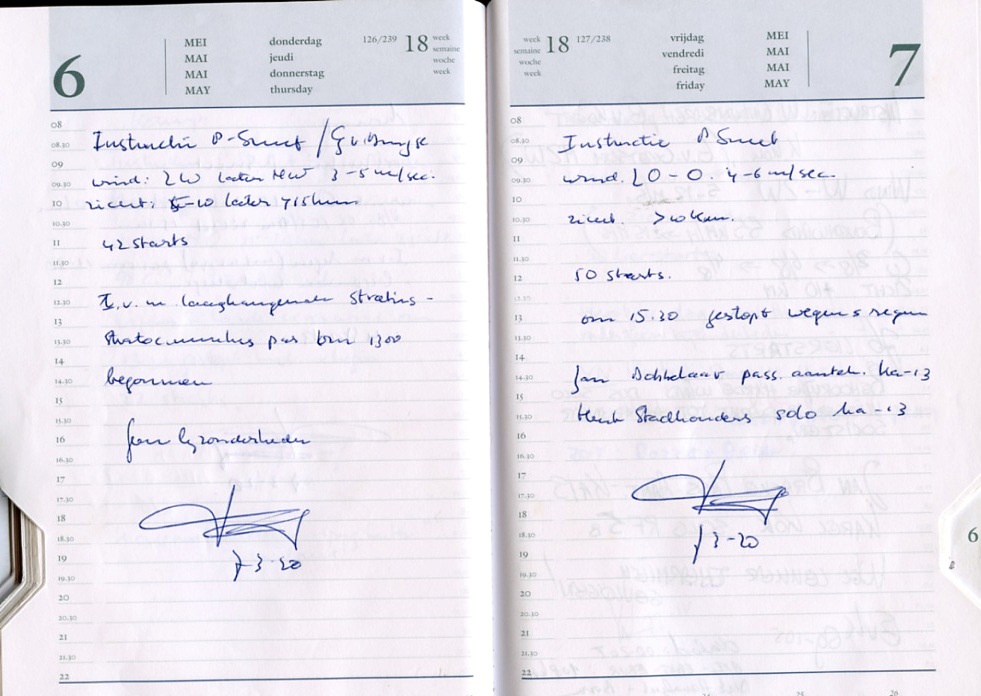 6
MEI
MAI
MAI
MAY
donderdag
jeudi
donnerstag
thursday
126/239
18
week
semaine
woche
week
08
08.30
09
09.30
10
10.30
11
11.30
12
12.30
13
13.30
14
14.30
15
15.30
16
16.30
17
17.30
18
18.30
19
19.30
20
20.30
21
21.30
22
Instructie P-Smet /
wind: ZW later NW 3-5 m/sec.
zicht: 5-10 later >15km
42 starts
I.v.m laaghangende Stratus-
Stratocumulus pas om 1300
begonnen
Geen byzonderheden
week
semaine
woche
week
18
127/238
vrijdag
vendredi
freitag
friday
MEI
MAI
MAI
MAY
7
08
08.30
09
09.30
10
10.30
11
11.30
12
12.30
13
13.30
14
14.30
15
15.30
16
16.30
17
17.30
18
18.30
19
19.30
20
20.30
21
21.30
22
Instructie P Smet
wind. ZO-O. 4-6 m/sec.
zicht. >10 km.
50 starts.
om 15.30 gestopt wegens regen
Jan Achtelaar pass. aantek. ka-13
Henk Stadhouders solo ka-13
6